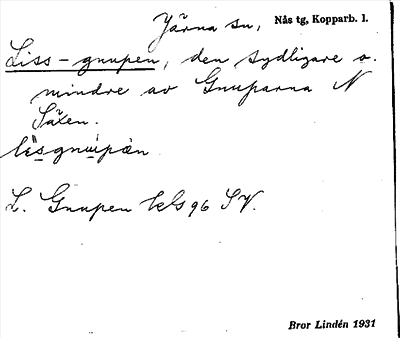 Järna sn, Nås tg, Kopparb. l.
Liss-gnupen, den sydligare o.
mindre av Gnuparna N
Säxen.
lisgnupən
L. Gnupen kbs 96 SV.
Bror Lindén 1931